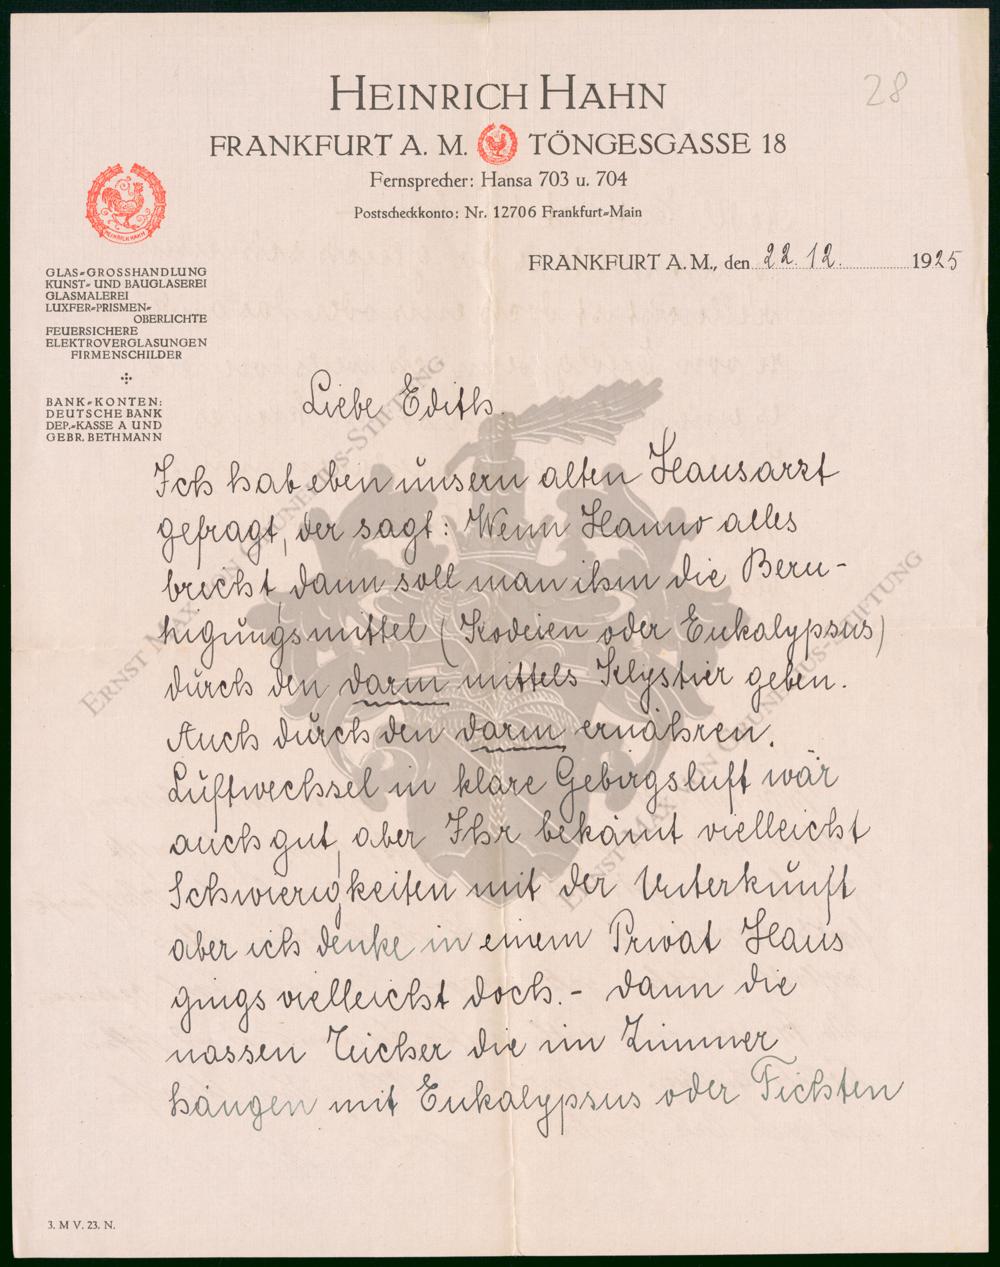 28
HEINRICH HAHN
FRANKFURT A. M. TÖNGESGASSE 18
Fernsprecher: Hansa 703 u. 704
Postscheckkonto: Nr. 12706 Frankfurt-Main
HEINRICH HAHN
FRANKFURT A. M., den 22. 12. 1925
GLAS-GROSSHANDLUNG
KUNST- UND BAUGLASEREI
GLASMALEREI
LUXFER-PRISMEN-
OBERLICHTE
FEUERSICHERE
ELEKTROVERGLASUNGEN
FIRMENSCHILDER
BANK-KONTEN:
DEUTSCHE BANK
DEP.-KASSE A UND
GEBR. BETHMANN
Liebe Edith.
Ich hab eben unsern alten Hausarzt
gefragt, der sagt: Wenn Hanno alles
bricht, dann soll man ihm die Beru-
higungsmittel (Kodeien oder Eukalypsus)
durch den darm mittels Klystier geben.
Auch durch den darm ernähren.
Luftwechsel in klare Gebirgsluft wär
auch gut, aber Ihr bekämt vielleicht
Schwierigkeiten mit der Unterkunft
aber ich denke in einem Privat Haus
gings vielleicht doch. - dann die
nassen Tücher die im Zimmer
hängen mit Eukalypsus oder Fichten
3. M V. 23. N.
ERNST MAX VON GRUNELIUS-STIFTUNG
ERNST MAX VON GRUNELIUS-STIFTUNG